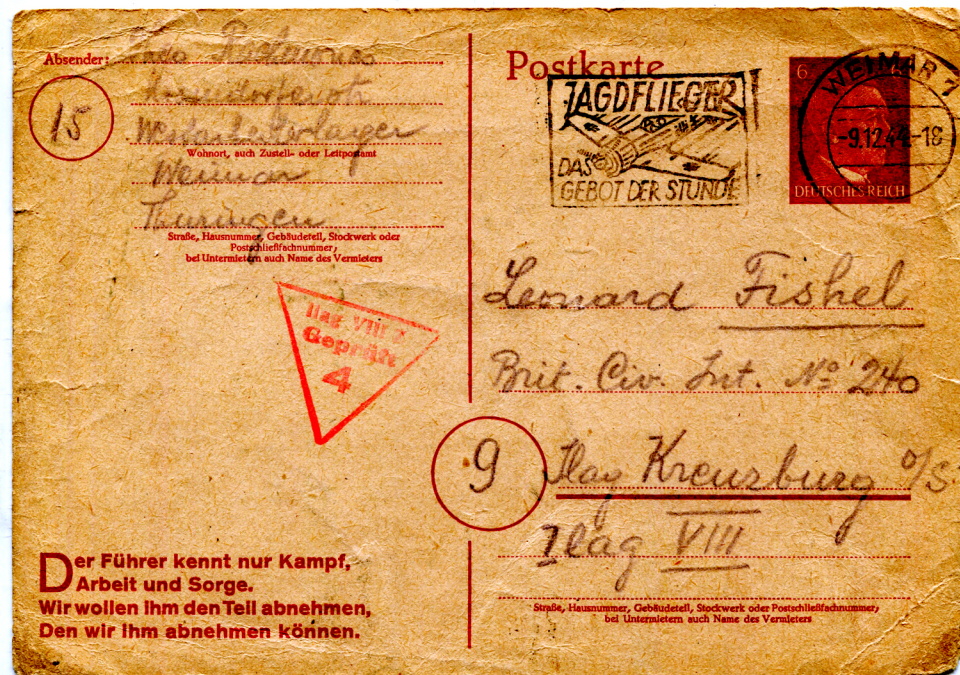 Absender:
15
Westarbeiterlager
Wohnort, auch Zustell- oder Leitpostamt
Weimar
Thüringen
Straße, Hausnummer, Gebäudeteil, Stockwerk oder
Postschließfachnummer,
bei Untermietern auch Name des Vermieters
Ilag VIII
Geprüft
4
Der Führer kennt nur Kampf,
Arbeit und Sorge.
Wir wollen ihm den Teil abnehmen,
Den wir ihm abnehmen können.
Postkarte
JAGDFLIEGER
DAS
GEBOT DER STUNDE
6
WEIMAR 7
-9.12.44-18
DEUTSCHES REICH
Leonard Fishel
Brit. Civ. Int. No 240
9
Ilag Kreuzburg O/S.
Ilag VIII
Straße, Hausnummer, Gebäudeteil, Stockwerk oder Postschließfachnummer,
bei Untermietern auch Name des Vermieters